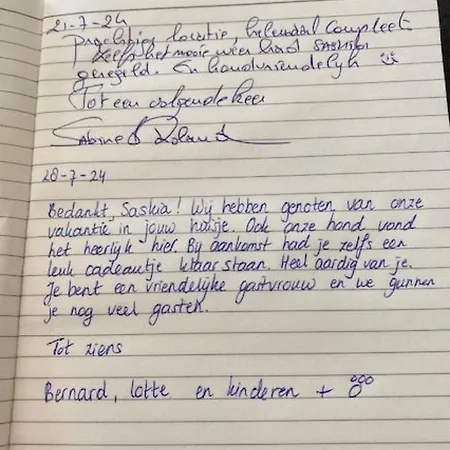 21-7-24
Prachtige locatie, helemaal compleet
Zelfs het mooie weer had Saskia
geregeld. En hondvriendelijk
Tot een volgende keer
Sabine &
28-7-24
Bedankt, Saskia! Wij hebben genoten van onze
vakantie in jouw huisje. Ook onze hond vond
het heerlijk hier. Bij aankomst had je zelfs een
leuk cadeautje klaar staan. Heel aardig van je.
Je bent een vriendelijke gastvrouw en we gunnen
je nog veel gasten.
Tot ziens
Bernard, Lotte en kinderen +